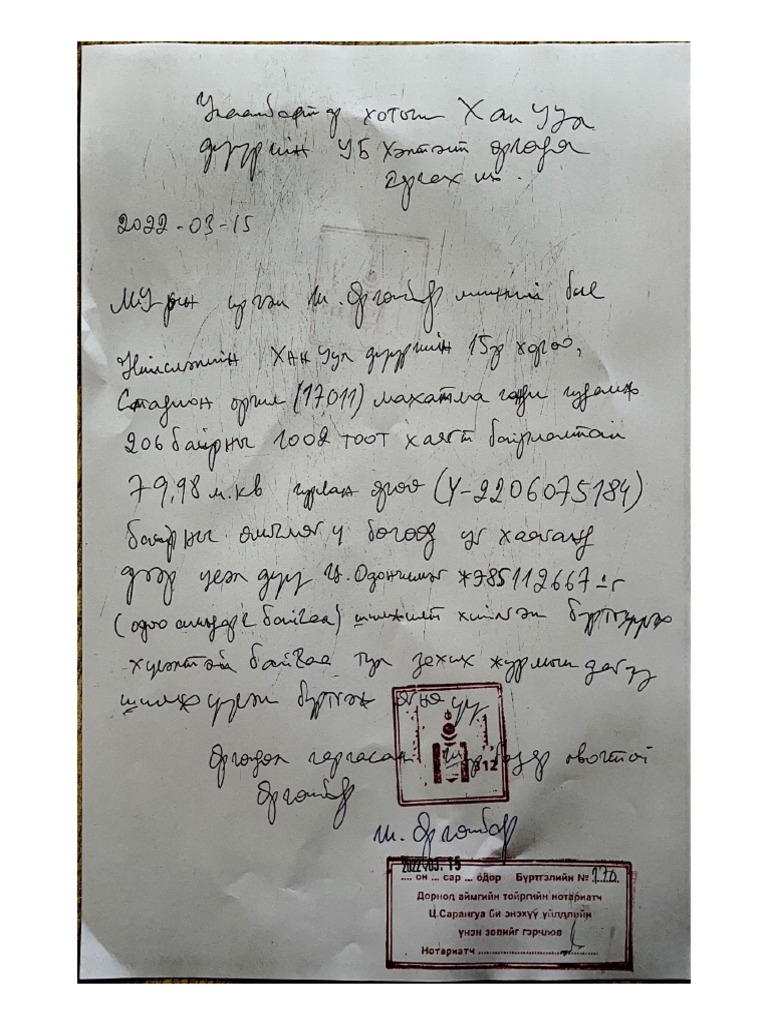 Улаанбаатар хотын Хан Уул
дүүргийн УБ Хэлтэст өргөдөл
гаргах нь.
2022-03-15
МУ-ын иргэн Ш. миний бие
Нийслэлийн Хан Уул дүүргийн 15р хороо,
Стадион оргил (17011) махатма ганди гудамж
206 байрны 1002 тоот хаягт байршилтай
79,98 м.кв гурван өрөө (У-2206075184)
байрны өмчлөгч бөгөөд уг хаяганд
дээр үеэн дүү Ц. Одончимэг ЖЭ85112667
(одоо байгаа) шилжилт хийлгэн бүртгүүлэх
хүсэлтэй байгаа тул зохих журмын дагуу
шилжүүлэн бүртгэж өгнө үү
Өргөдөл гаргасан овогтой
Ш.
312
2022.03.15
.... он ... сар ... өдөр Бүртгэлийн № 170
Дорнод аймгийн тойргийн нотариатч
Ц.Сарангуа би энэхүү үйлдлийн
үнэн зөвийг гэрчлэв
Нотариатч